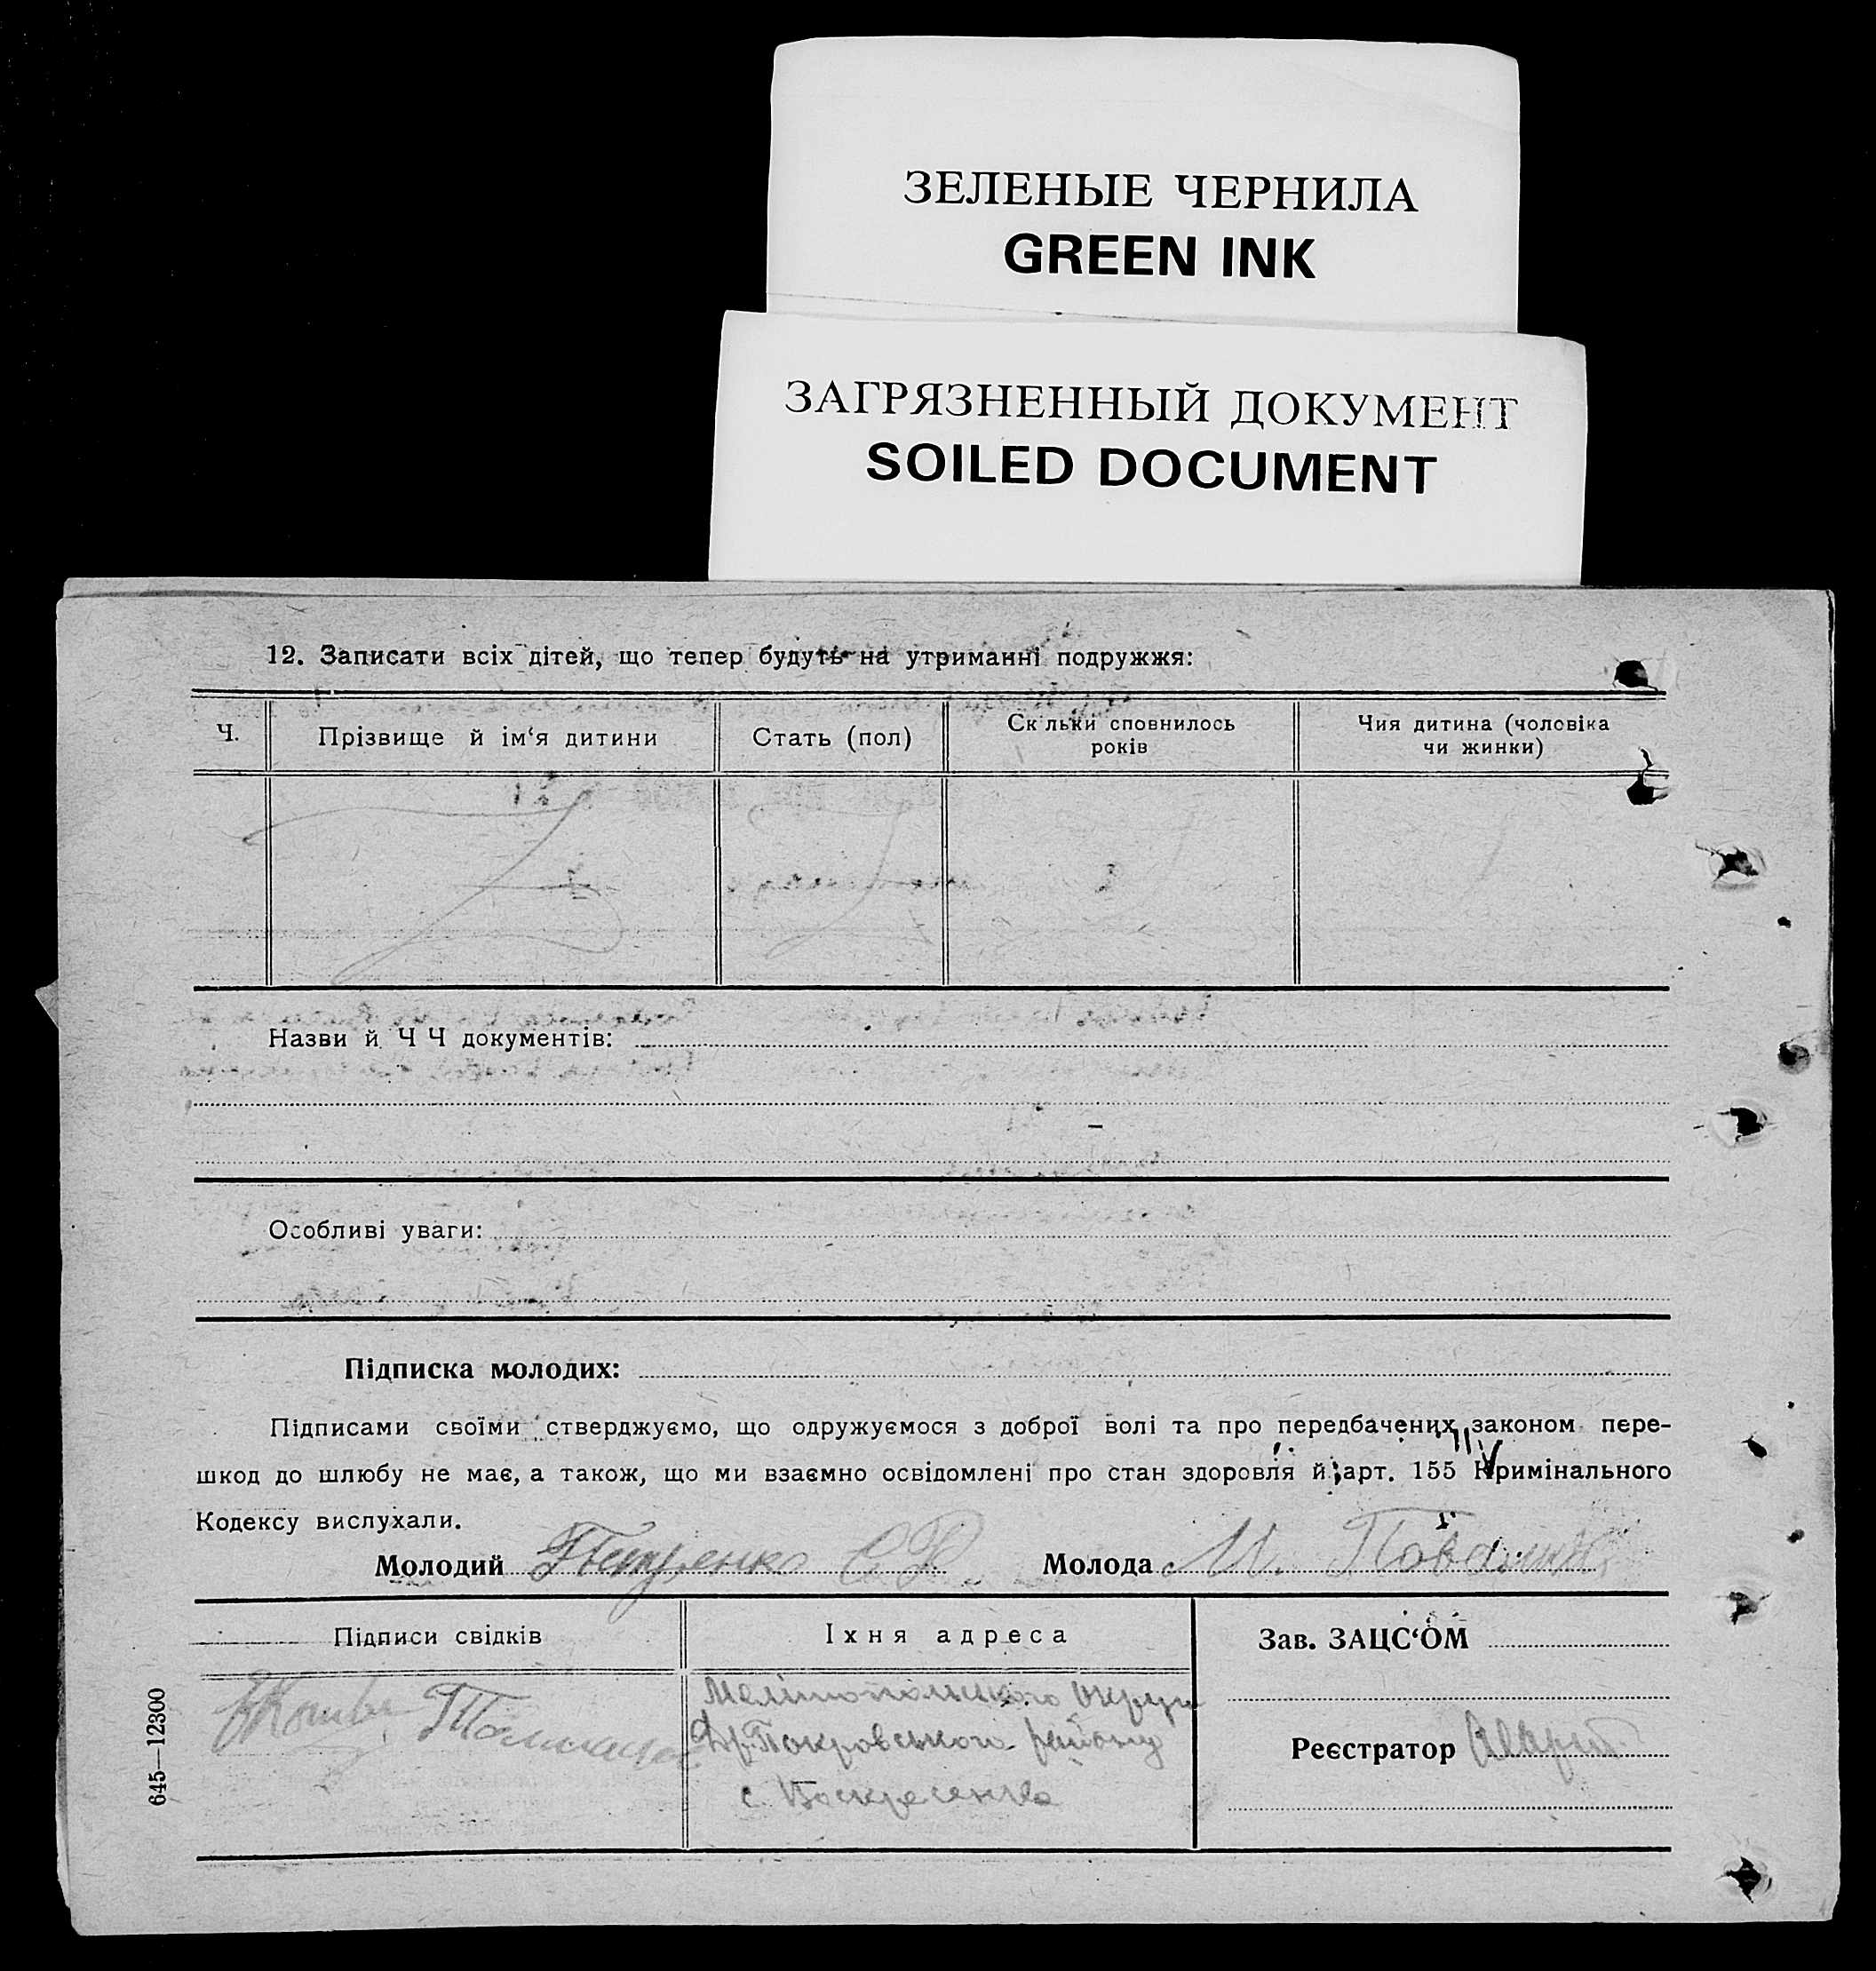 ЗЕЛЕНЫЕ ЧЕРНИЛА
GREEN INK
ЗАГРЯЗНЕННЫЙ ДОКУМЕНТ
SOILED DOCUMENT
12. Записати всіх дітей, що тепер будуть на утриманні подружжя:
Ч.
Прізвище й ім‘я дитини
Стать (пол)
Ск льки сповнилось
років
Чия дитина (чоловіка
чи жинки)
Назви й Ч Ч документів:
Особливі уваги:
Підписка молодих:
Підписами своїми стверджуємо, що одружуємося з доброї волі та про передбачених законом пере-
шкод до шлюбу не має, а також, що ми взаємно освідомлені про стан здоровля й арт. 155 Кримінального
Кодексу вислухали.
Молодий Петренко
Молода М.
Підписи свідків
Їхня адреса
Зав. ЗАЦС‘ОМ
Мелітопольського Округи
Покровського району
с. Воскресенка
Реєстратор
645—12300